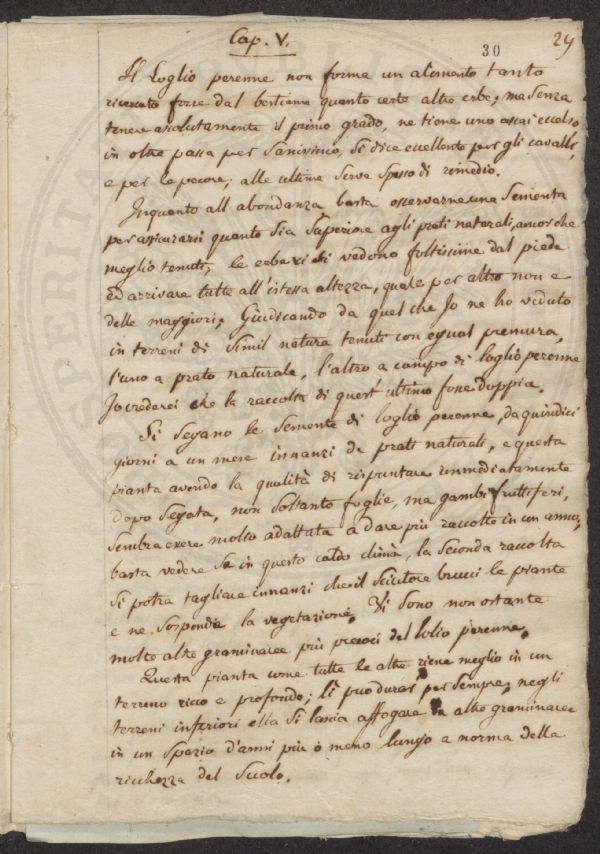 Cap. V.
30
29
Il Loglio perenne non forma un alimento tanto
ricercato forse dal bestiame quanto certe altre erbe, ma senza
tenere assolutamente il primo grado, ne tiene uno assai eccelso,
in oltre passa per sanissimo, si dice eccellente per gli cavalli,
e per le pecore; alle ultime serve spesso di rimedio.
Inquanto all abondanza basta osservarne una sementa
per assicurarsi quanto sia superiore agli prati naturali, ancor che
meglio tenuti, le erbe vi si vedono foltissime dal piede
ed arrivare tutte all'istessa altezza, quale per altro non e
delle maggiori. Giudicando da quel che Io ne ho veduto
in terreni di simil natura tenuti con egual premura,
l'uno a prato naturale, l'altro a campo di loglio perenne
Io crederei che la raccolta di quest'ultimo fosse doppia.
Si segano le semente di loglio perenne, da quindici
giorni a un mese innanzi de prati naturali, e questa
pianta avendo la qualità di rispuntare immediatamente
dopo segata, non soltanto foglie, ma gambi fruttiferi,
sembra essere molto adattata a dare più raccolte in un anno,
basta vedere se in questo caldo clima, la seconda raccolta
si potra tagliare innanzi che il sciutore brucci le piante
e ne sospenda la vegetazione. Vi sono non ostante
molte altre graminacee più precoci del lolio perenne.
Questa pianta come tutte le altre viene meglio in un
terreno ricco e profondo; lì può durar per sempre, negli
terreni inferiori ella si lascia affogare da altre graminacee
in un spazio d'anni più o meno lungo a norma della
ricchezza del suolo.